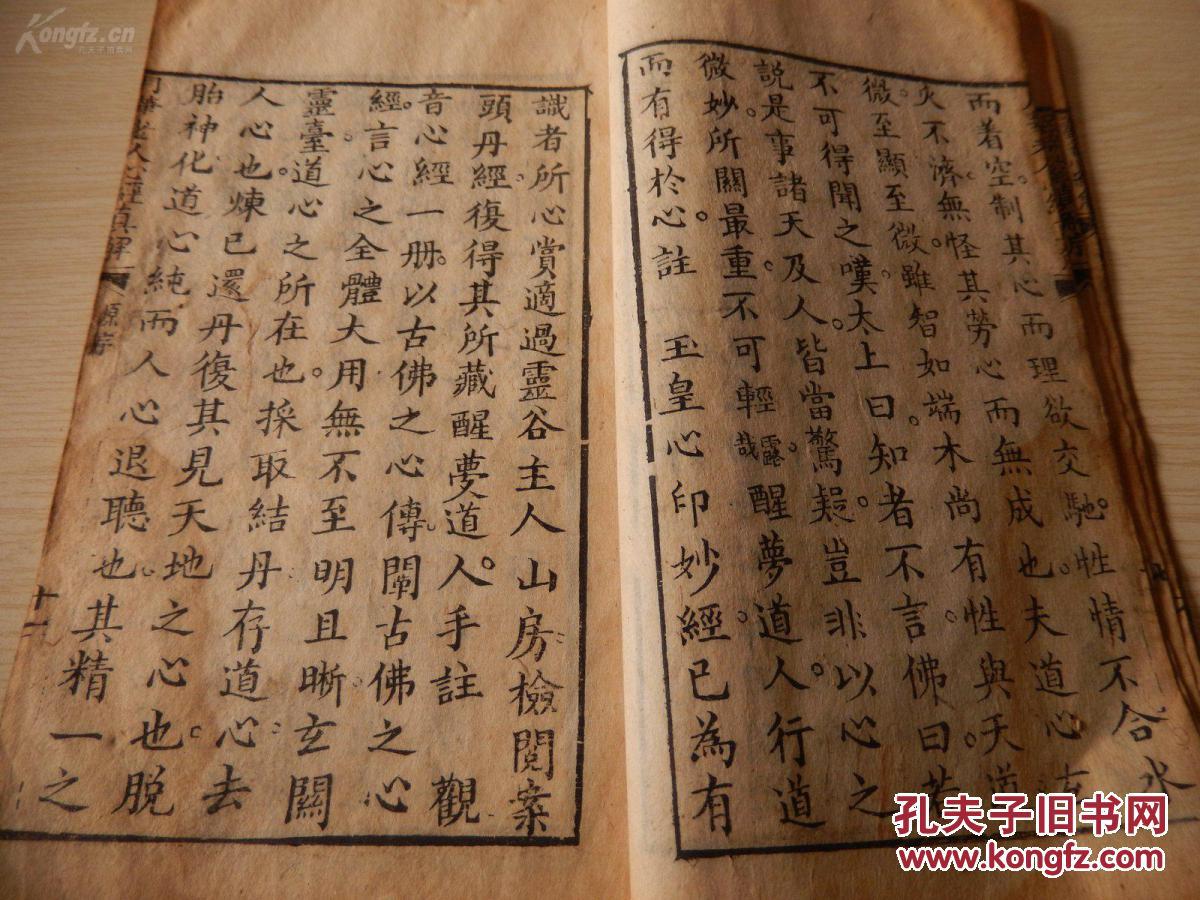 而着空制其心而理欲交馳性情不合水
火不濟無怪其勞心而無成也夫道心
微至顯至微雖智如端木尚有性與天道
不可得聞之嘆太上曰知者不言佛曰若
說是事諸天及人皆當驚疑豈非以心之
微妙所關最重不可輕露哉醒夢道人行道
而有得於心註 玉皇心印妙經已為有
識者所心賞適過靈谷主人山房檢閱案
頭丹經復得其所藏醒夢道人手註 觀
音心經一册以古佛之心傳闡古佛之心
經言心之全體大用無不至明且晰玄關
靈臺道心之所在也採取結丹存道心去
人心也煉已還丹復其見天地之心也脫
胎神化道心純而人心退聽也其精一之
老人心經真解 原序 十一
Kongfz.cn
孔夫子旧书网
孔夫子旧书网
www.kongfz.com